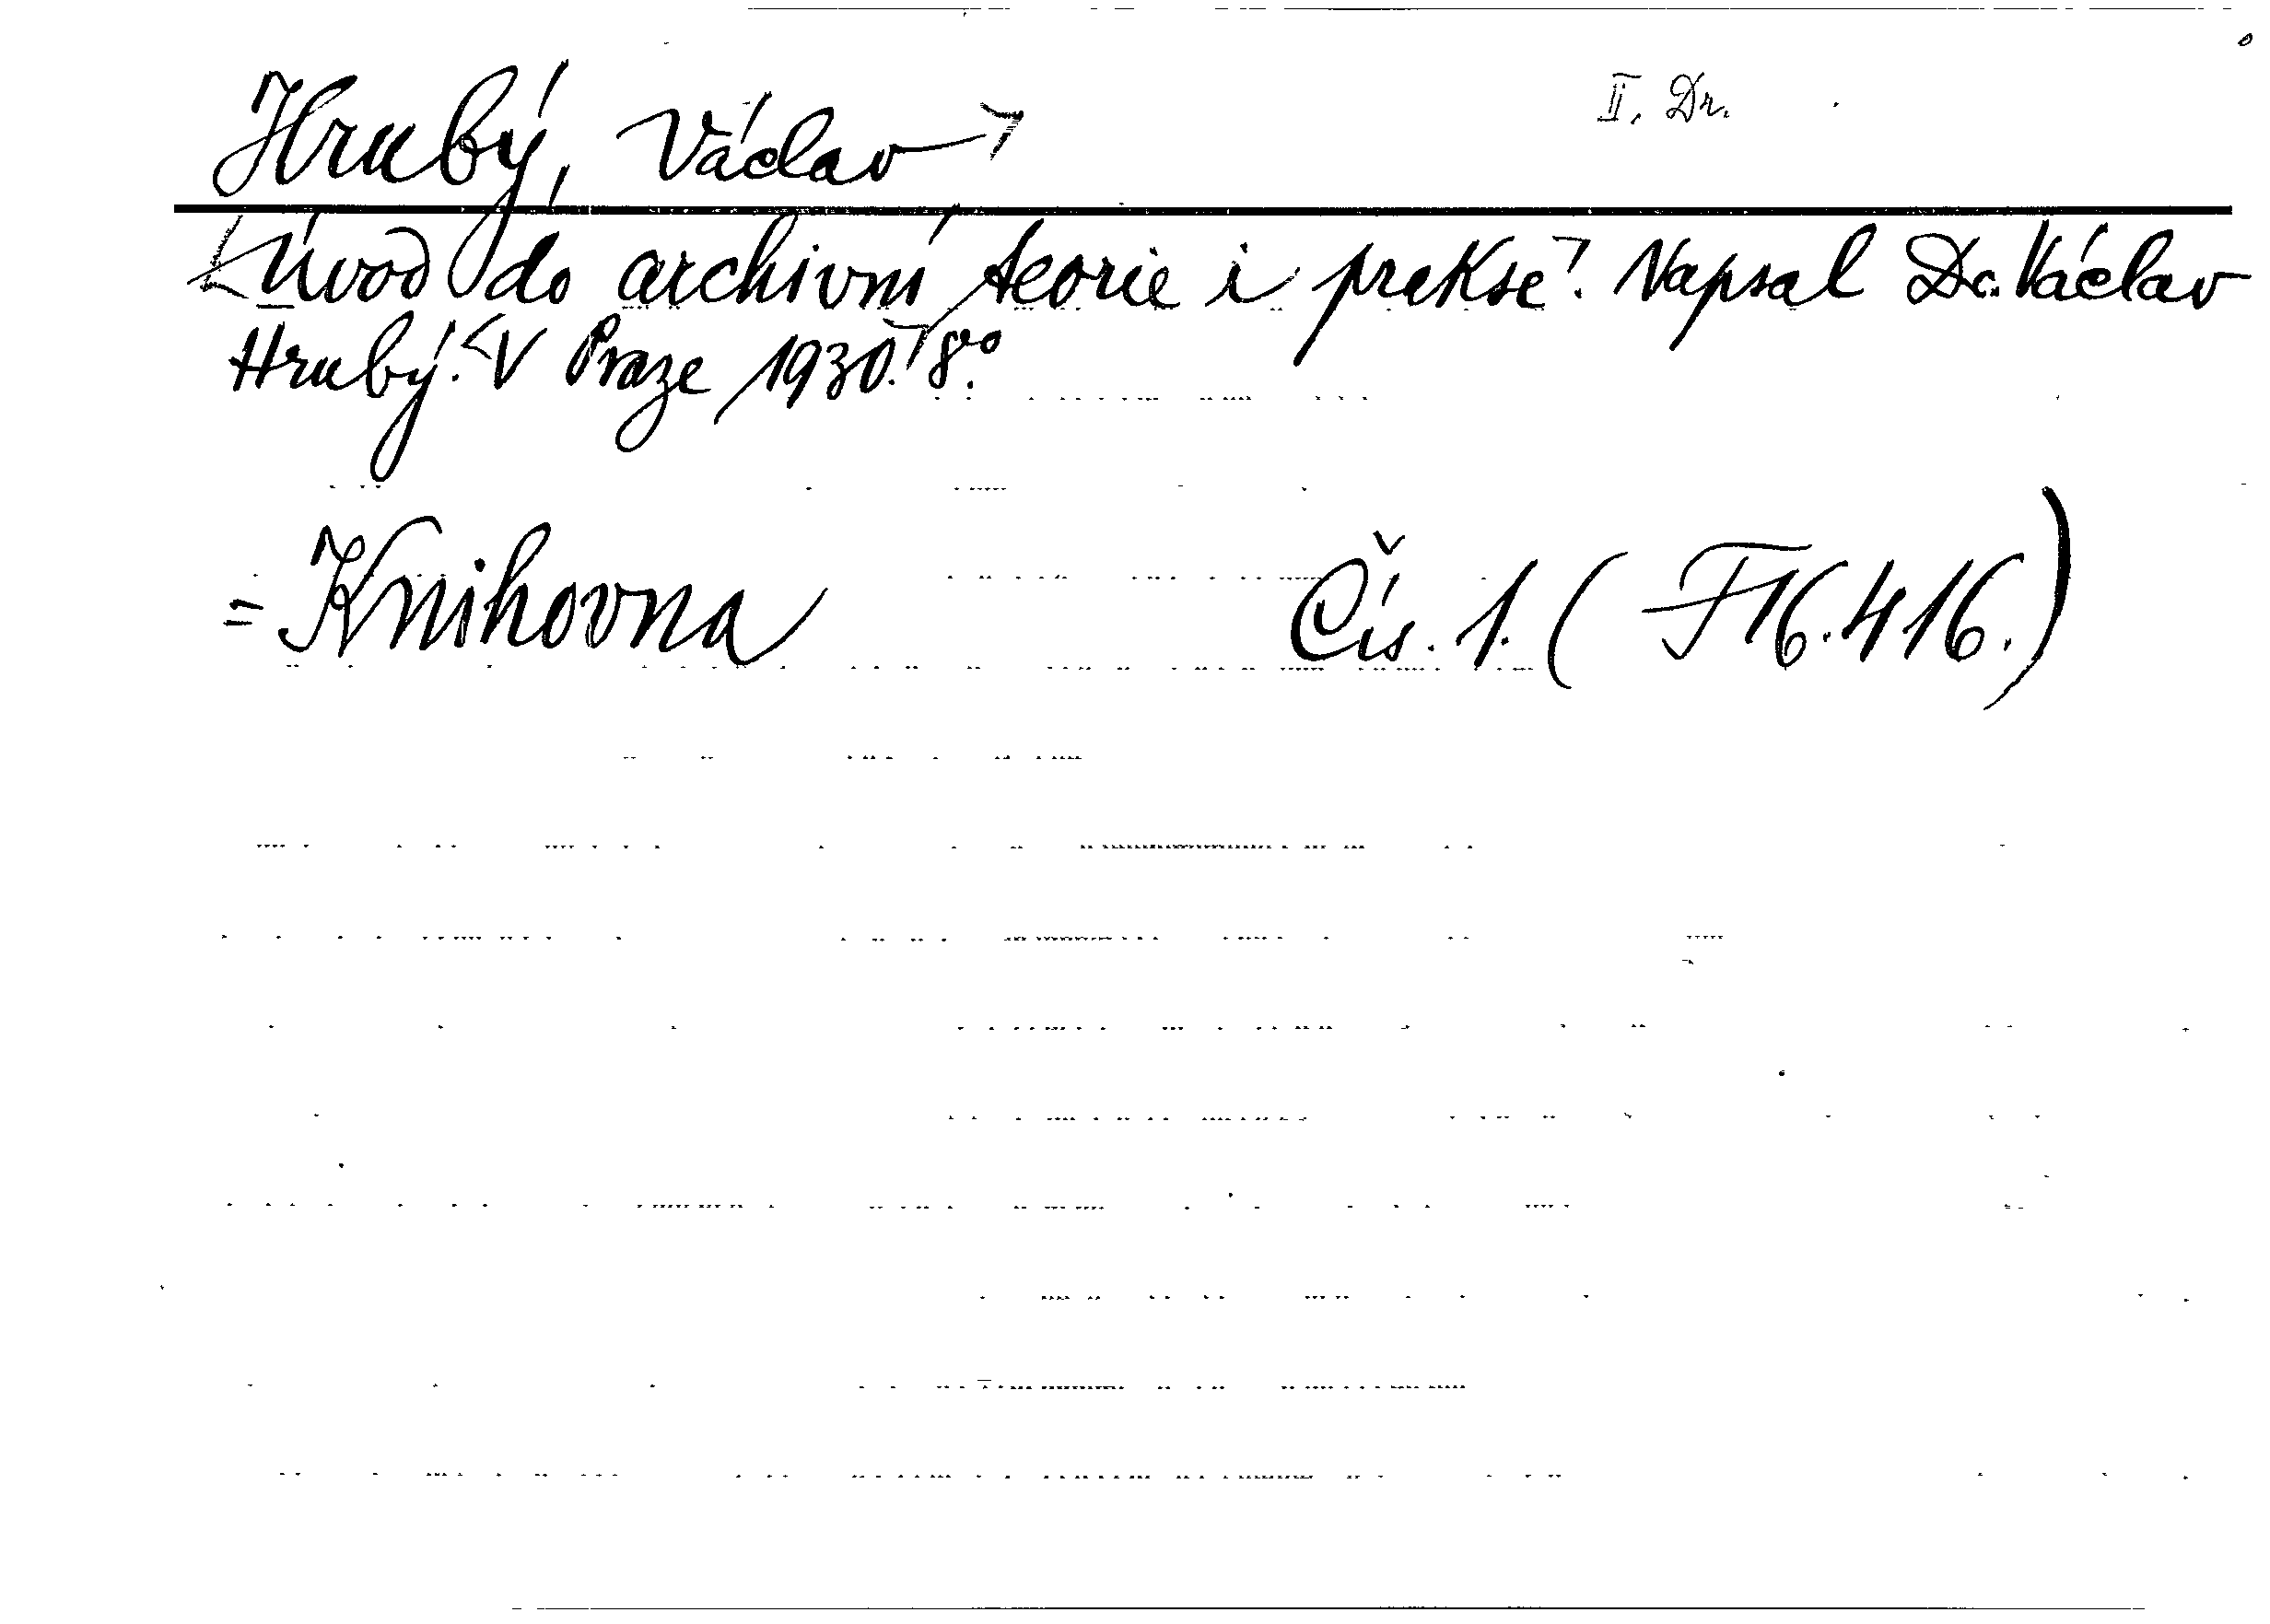 Hrubý, Václav II. Dr.
Úvod do archivní teorie i prakse. Napsal Dr. Václav
Hrubý. V Praze 1930. 8°.
= Knihovna Čís. 1. ( F 16.416.)